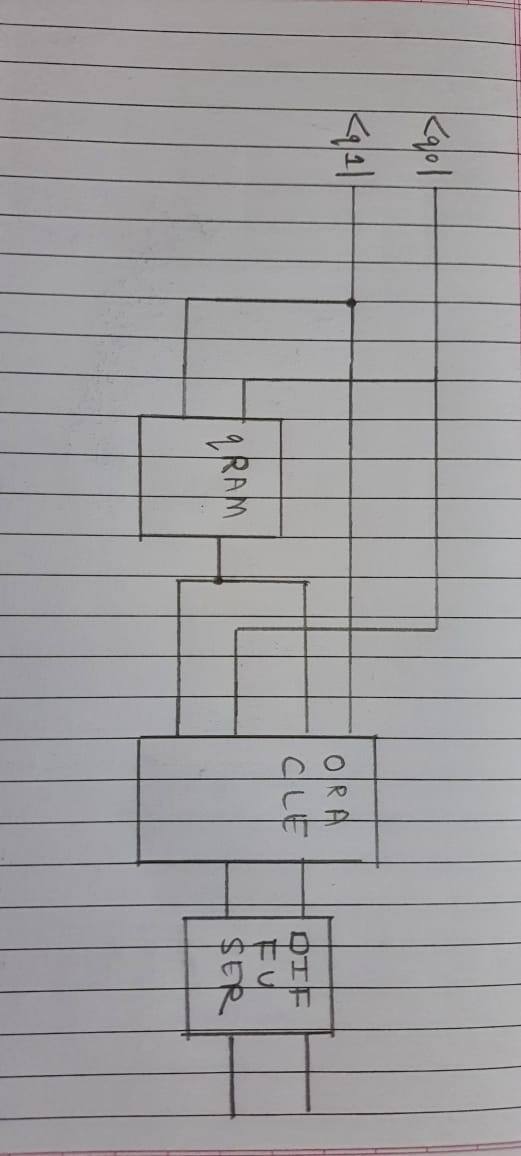 <q0|
<q1|
qRAM
ORA
CLE
DIF
FU
SER